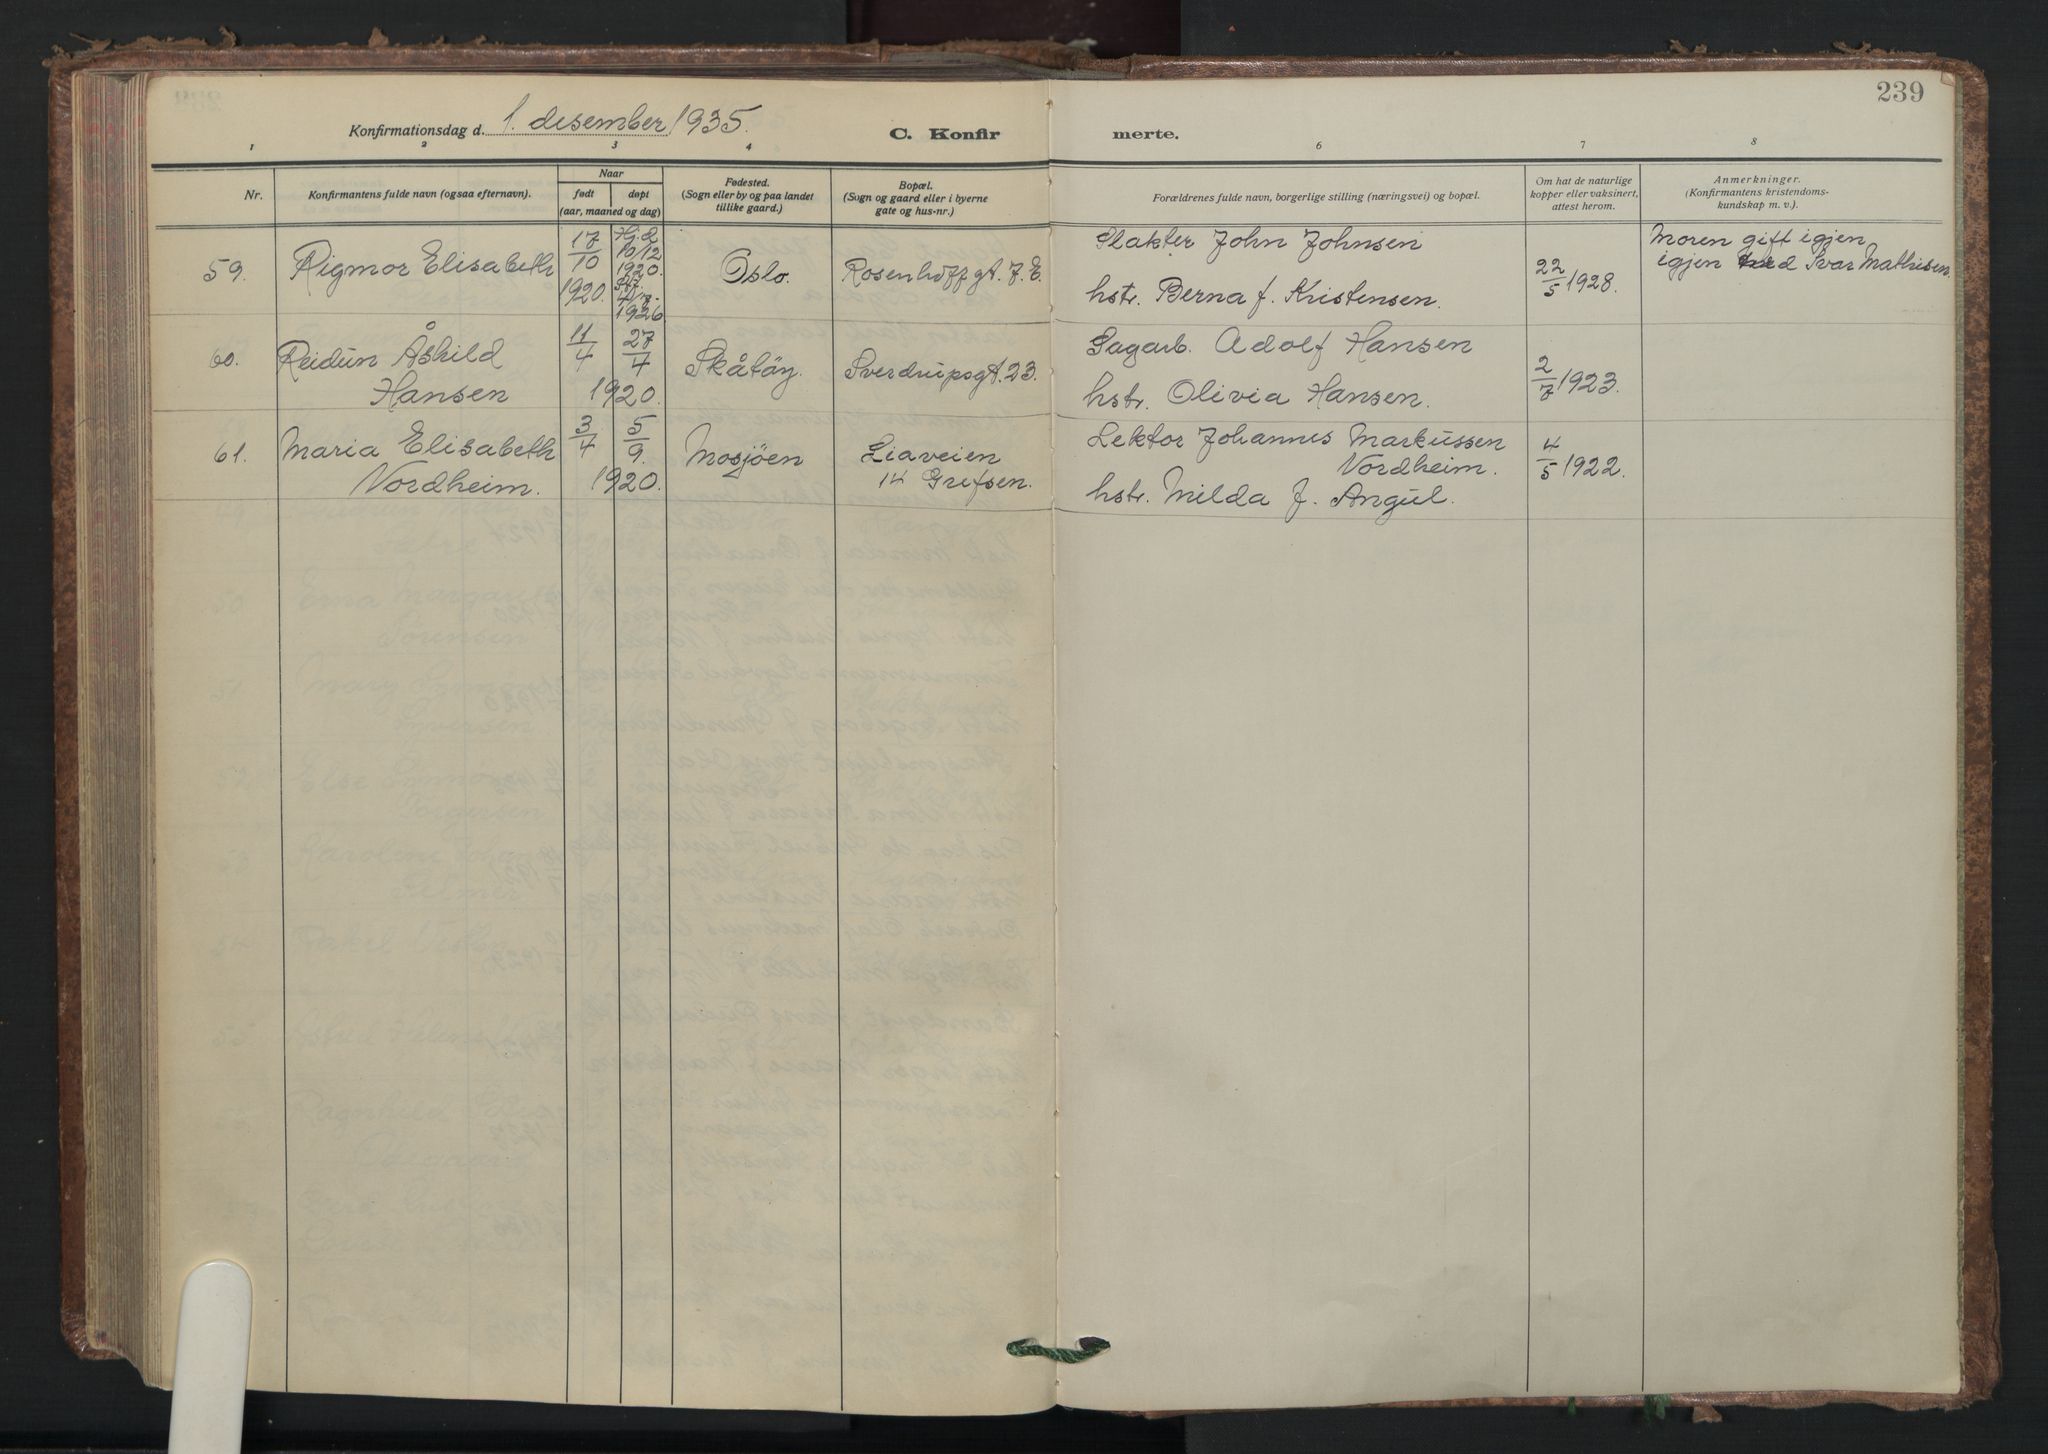 239
Konfirmationsdag d. 1. desember 1935.
C. Konfirmerte.
1 2 3 4 6 7 8
Nr.
Konfirmantens fulde navn (ogsaa efternavn).
Naar
født
døpt
(aar, maaned og dag)
Fødested.
(Sogn eller by og paa landet
tillike gaard.)
Bopæl.
(Sogn og gaard eller i byerne
gate og hus-nr.)
Forældrenes fulde navn, borgerlige stilling (næringsvei) og bopæl.
Om hat de naturlige
kopper eller vaksinert,
attest herom.
Anmerkninger.
(Konfirmantens kristendoms-
kundskap m. v.).
59. Rigmor Elisabeth
17/10 1920.
10/12 1920.
1926
Oslo.
Rosenhoffgt. 7. E.
Slakter John Johnsen
hstr. Berna f. Kristensen.
22/5 1928.
Moren gift igjen
igjen med Ivar Mathisen.
60. Reidun Åshild
Hansen
11/4 27/4
1920.
Skåtöy.
Sverdrupsgt. 23.
Sagarb. Adolf Hansen
hstr. Olivia Hansen.
2/7 1923.
61. Maria Elisabeth
Nordheim.
3/4 5/9.
1920.
Mosjöen
Liaveien
14 Grefsen.
Lektor Johannes Markussen
Nordheim.
hstr. Milda f. Angül.
4/5 1922.